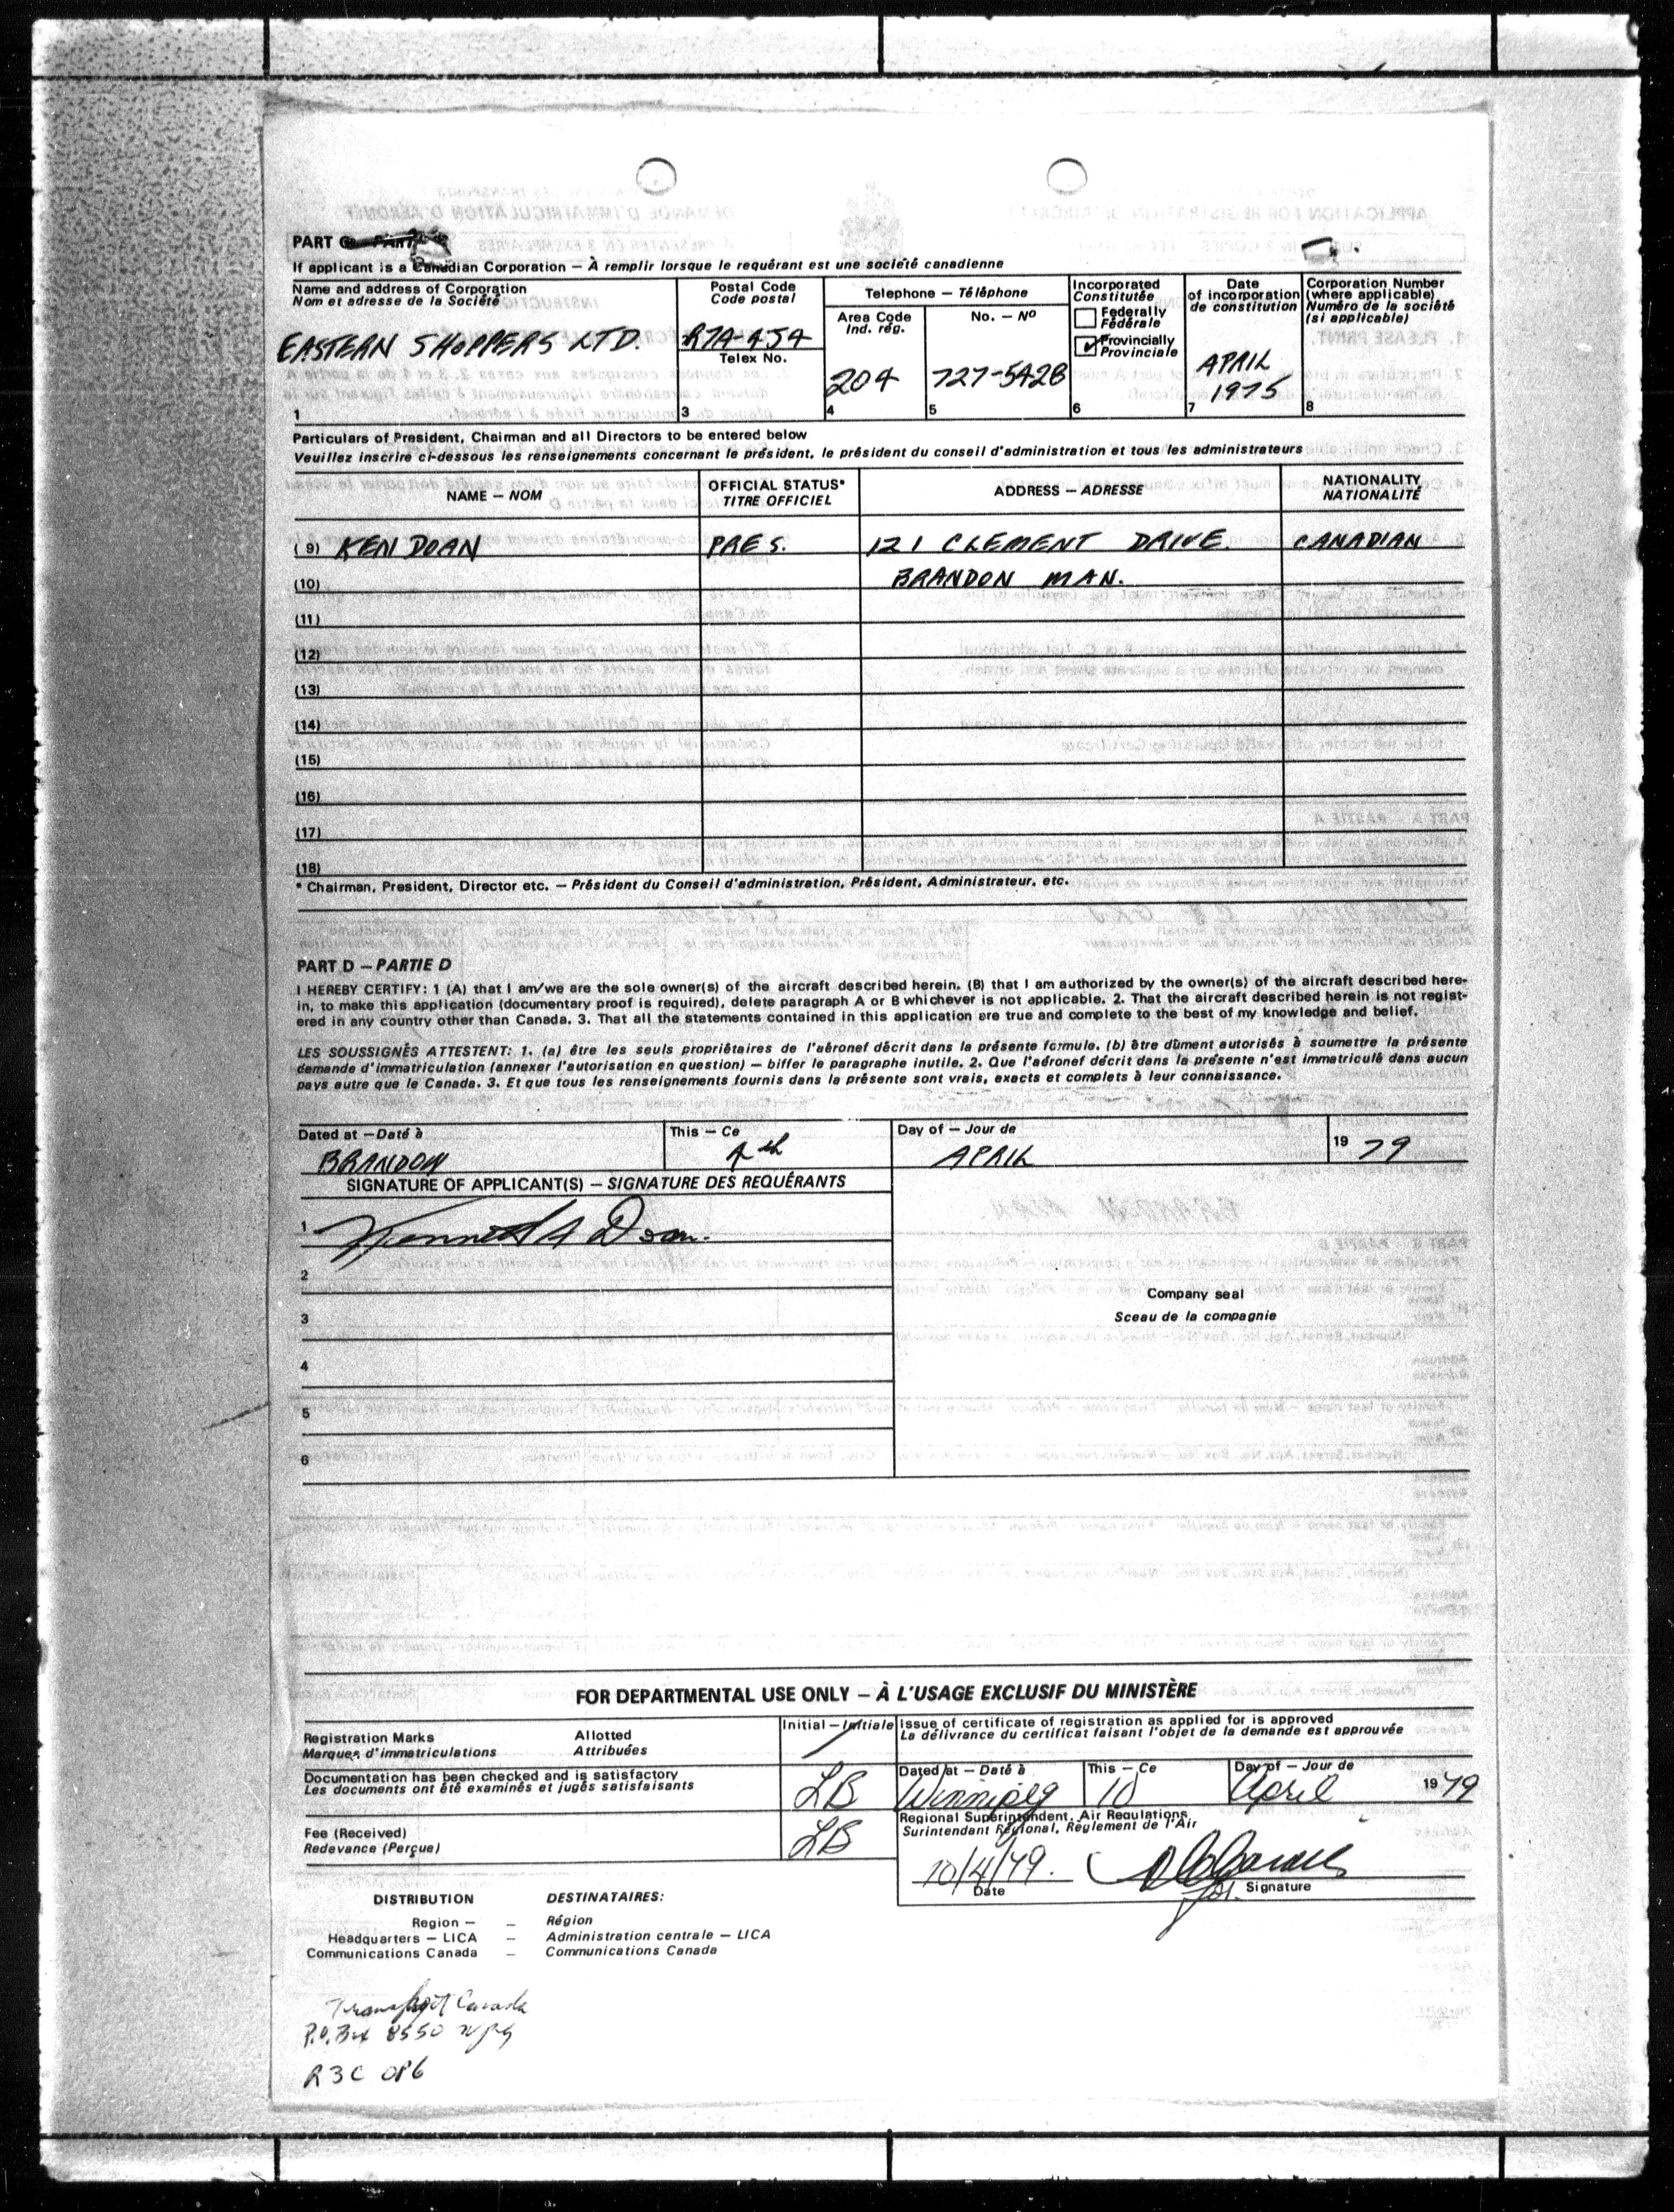 PART C
If applicant is a Canadian Corporation — À remplir lorsque le requérant est une société canadienne
Name and address of Corporation
Nom et adresse de la Société
EASTERN SHOPPERS LTD.
1
Postal Code
Code postal
R7A-4S4
Telex No.
3
Telephone — Téléphone
Area Code
Ind. rég.
204
4
No. — Nº
727-5428
5
Incorporated
Constitutée
Federally
Fédérale
Provincially
Provinciale
6
Date
of incorporation
de constitution
APRIL
1975
7
Corporation Number
(where applicable)
Numéro de la société
(si applicable)
8
Particulars of President, Chairman and all Directors to be entered below
Veuillez inscrire ci-dessous les renseignements concernant le président, le président du conseil d'administration et tous les administrateurs
NAME — NOM
OFFICIAL STATUS*
TITRE OFFICIEL
ADDRESS — ADRESSE
NATIONALITY
NATIONALITÉ
(9) KEN DOAN PRES. 121 CLEMENT DRIVE. CANADIAN
(10) BRANDON MAN.
(11)
(12)
(13)
(14)
(15)
(16)
(17)
(18)
* Chairman, President, Director etc. — Président du Conseil d'administration, Président, Administrateur, etc.
PART D — PARTIE D
I HEREBY CERTIFY: 1 (A) that I am/we are the sole owner(s) of the aircraft described herein. (B) that I am authorized by the owner(s) of the aircraft described here-
in, to make this application (documentary proof is required), delete paragraph A or B whichever is not applicable. 2. That the aircraft described herein is not regist-
ered in any country other than Canada. 3. That all the statements contained in this application are true and complete to the best of my knowledge and belief.
LES SOUSSIGNÉS ATTESTENT: 1. (a) être les seuls propriétaires de l'aéronef décrit dans la présente formule. (b) être dûment autorisés à soumettre la présente
demande d'immatriculation (annexer l'autorisation en question) — biffer le paragraphe inutile. 2. Que l'aéronef décrit dans la présente n'est immatriculé dans aucun
pays autre que le Canada. 3. Et que tous les renseignements fournis dans la présente sont vrais, exacts et complets à leur connaissance.
Dated at — Daté à
BRANDON
This — Ce
4th
Day of — Jour de
APRIL
19 79
SIGNATURE OF APPLICANT(S) — SIGNATURE DES REQUÉRANTS
1 Kenneth A Doan.
2
3
4
5
6
Company seal
Sceau de la compagnie
FOR DEPARTMENTAL USE ONLY — À L'USAGE EXCLUSIF DU MINISTÈRE
Registration Marks Allotted
Marques d'immatriculations Attribuées
Initial — Initiale
Documentation has been checked and is satisfactory
Les documents ont été examinés et jugés satisfaisants
LB
Fee (Received)
Redevance (Perçue)
LB
Issue of certificate of registration as applied for is approved
La délivrance du certificat faisant l'objet de la demande est approuvée
Dated at — Daté à
Winnipeg
This — Ce
10
Day of — Jour de
April
19 79
Regional Superintendent, Air Regulations,
Surintendant Régional, Règlement de l'Air
10/4/79.
Date
for. Signature
DISTRIBUTION DESTINATAIRES:
Region — — Région
Headquarters — LICA — Administration centrale — LICA
Communications Canada — Communications Canada
Transport Canada
P.O. Box 8550 Wpg
R3C 0P6